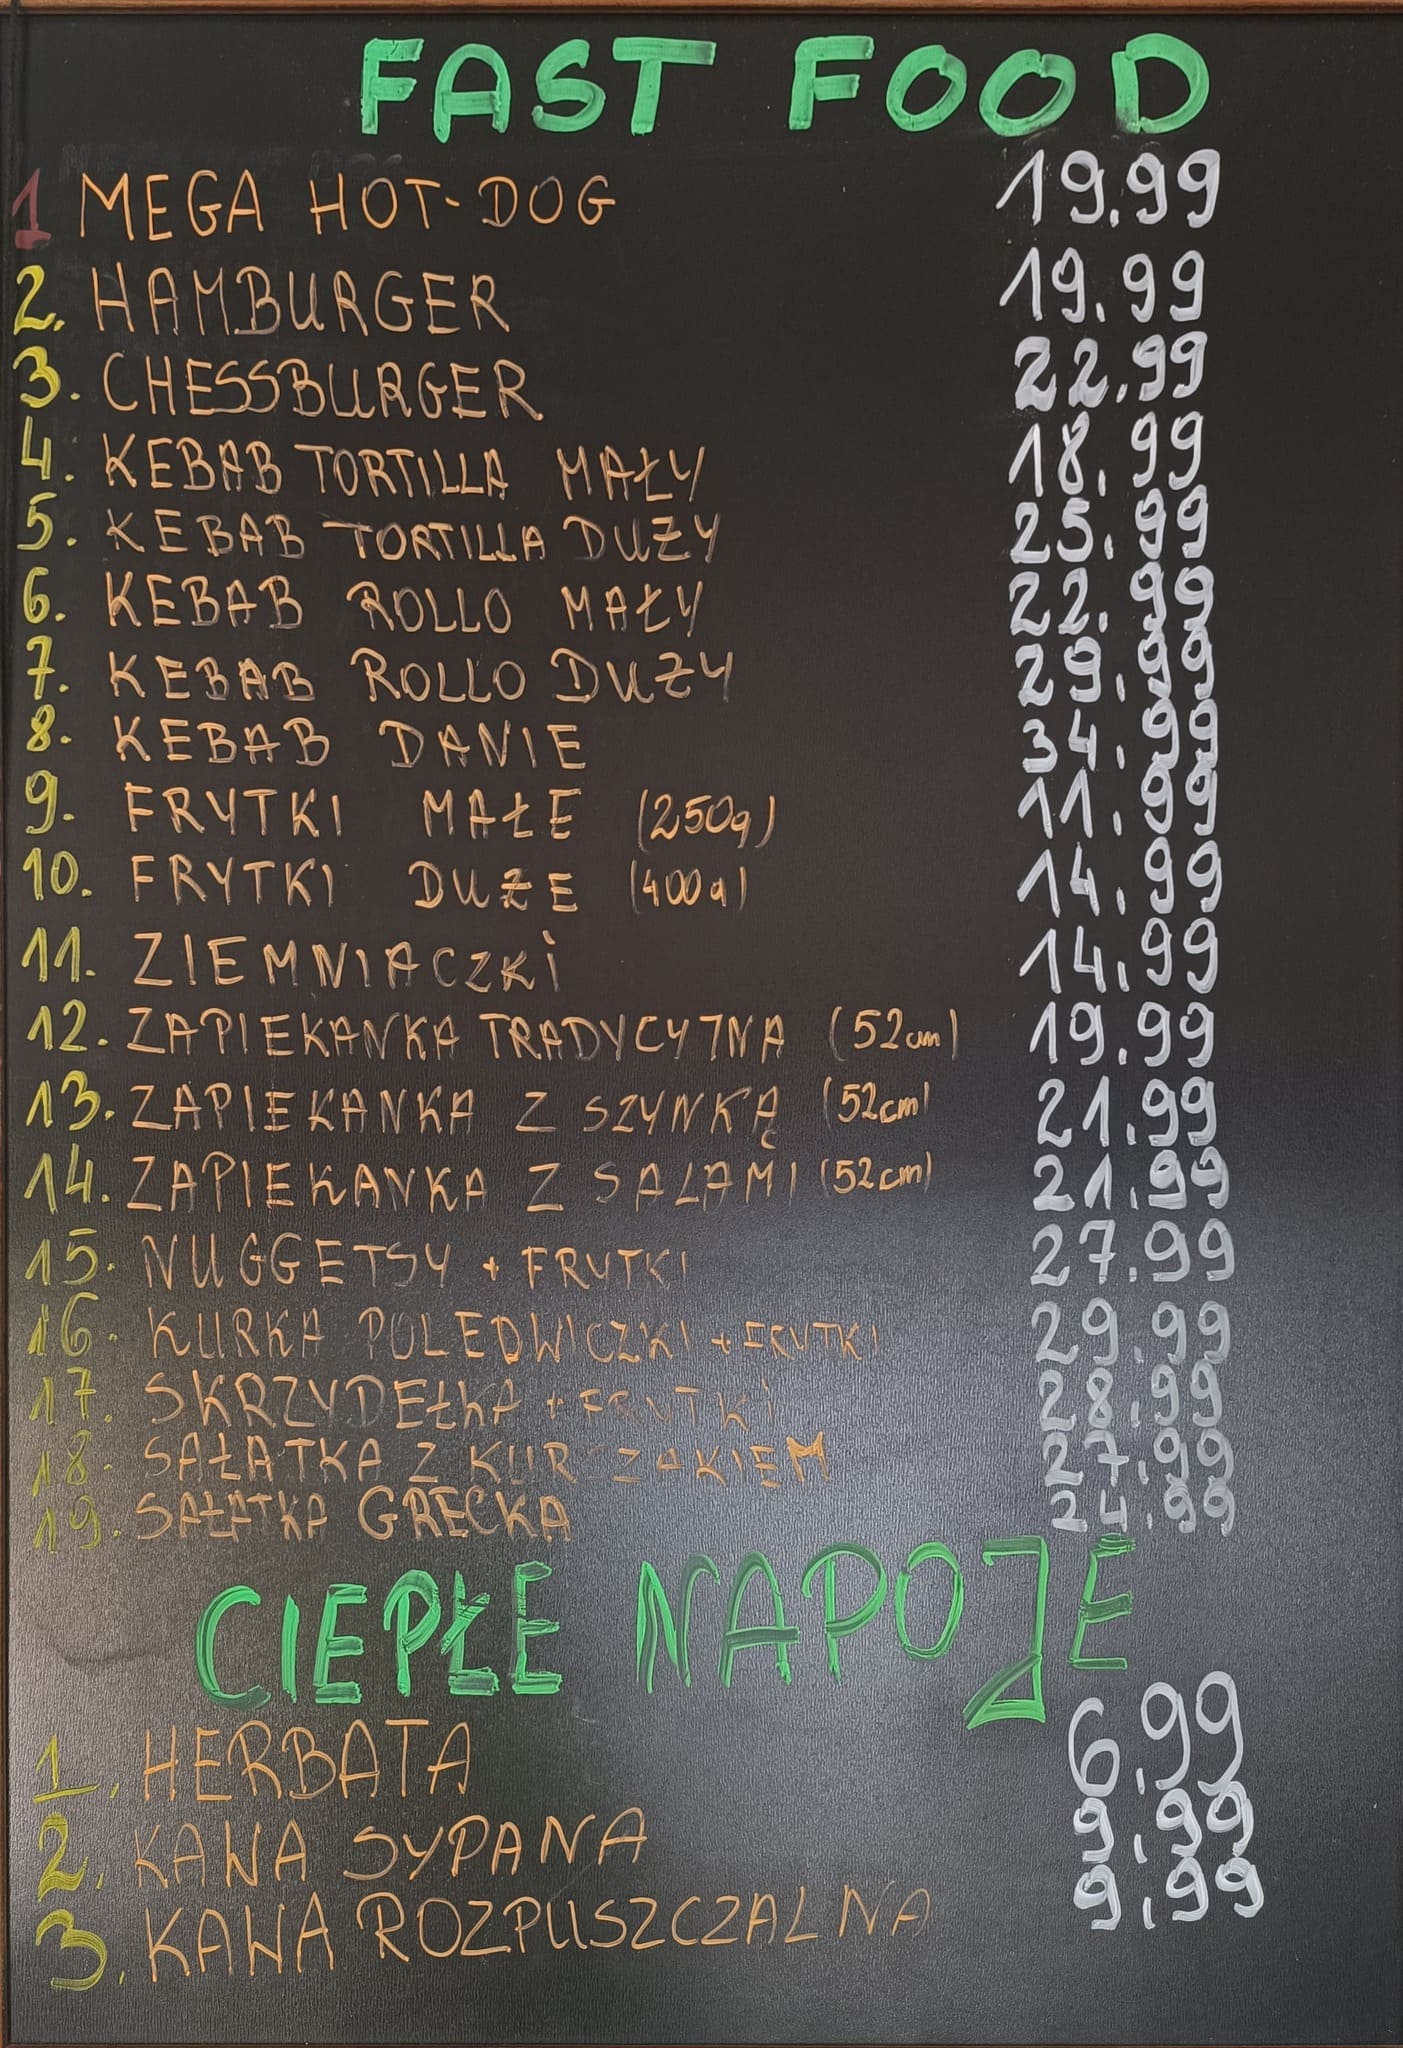 FAST FOOD
1 MEGA HOT-DOG 19.99
2. HAMBURGER 19.99
3. CHESSBURGER 22.99
4. KEBAB TORTILLA MAŁY 18.99
5. KEBAB TORTILLA DUŻY 25.99
6. KEBAB ROLLO MAŁY 22.99
7. KEBAB ROLLO DUŻY 29.99
8. KEBAB DANIE 34.99
9. FRYTKI MAŁE (250g) 11.99
10. FRYTKI DUŻE (400g) 14.99
11. ZIEMNIACZKI 14.99
12. ZAPIEKANKA TRADYCYJNA (52cm) 19.99
13. ZAPIEKANKA Z SZYNKĄ (52cm) 21.99
14. ZAPIEKANKA Z SALAMI (52cm) 21.99
15. NUGGETSY + FRYTKI 27.99
16. KURKA POLEDWICZKI + FRYTKI 29.99
17. SKRZYDEŁKA + FRYTKI 28.99
18. SAŁATKA Z KURCZAKIEM 27.99
19. SAŁATKA GRECKA 24.99
CIEPŁE NAPOJE
1. HERBATA 6.99
2. KAWA SYPANA 9.99
3. KAWA ROZPUSZCZALNA 9.99